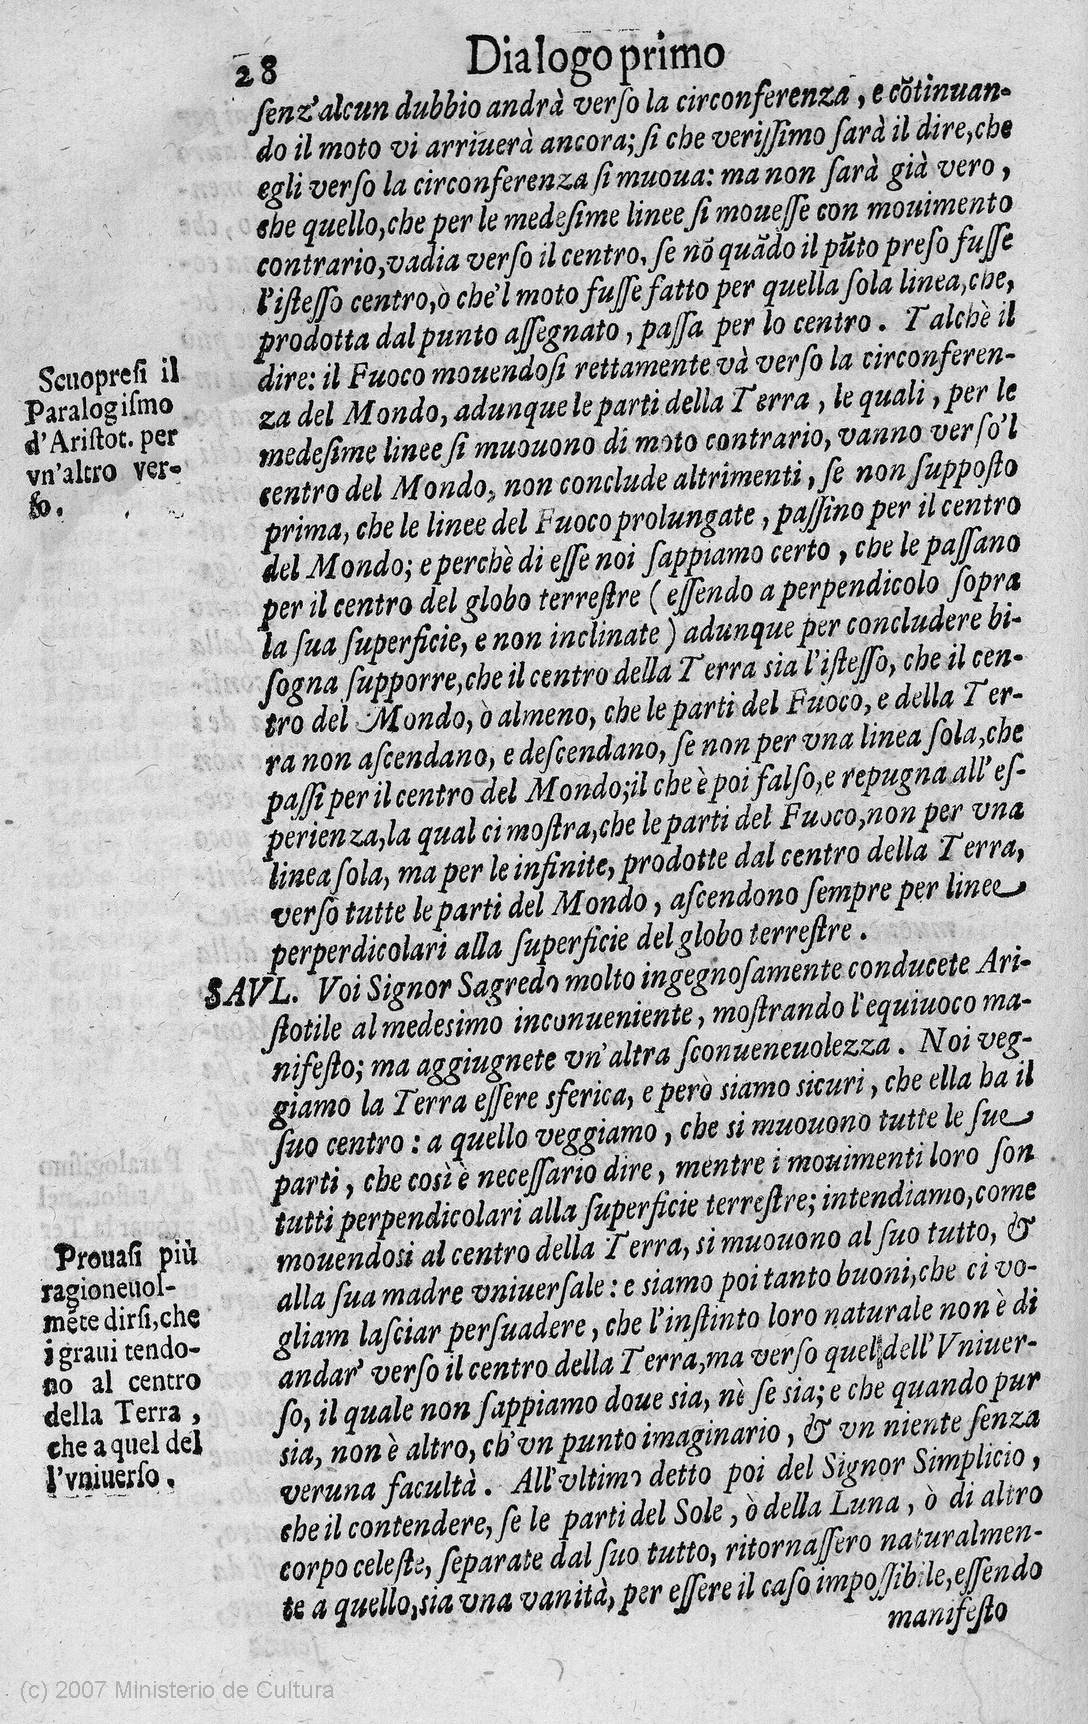 28
Dialogo primo
ſenz'alcun dubbio andrà verſo la circonferenza, e cõtinuan-
do il moto vi arriuerà ancora; ſi che veriſſimo ſarà il dire, che
egli verſo la circonferenza ſi muoua: ma non ſarà già vero,
che quello, che per le medeſime linee ſi moueſſe con mouimento
contrario, vadia verſo il centro, ſe nõ quãdo il pũto preſo fuſſe
l'iſteſſo centro, ò che'l moto fuſſe fatto per quella ſola linea, che,
prodotta dal punto aſſegnato, paſſa per lo centro. Talchè il
dire: il Fuoco mouendoſi rettamente và verſo la circonferen-
za del Mondo, adunque le parti della Terra, le quali, per le
medeſime linee ſi muouono di moto contrario, vanno verſo'l
centro del Mondo, non conclude altrimenti, ſe non ſuppoſto
prima, che le linee del Fuoco prolungate, paſſino per il centro
del Mondo; e perchè di eſſe noi ſappiamo certo, che le paſſano
per il centro del globo terreſtre (eſſendo a perpendicolo ſopra
la ſua ſuperficie, e non inclinate) adunque per concludere bi-
ſogna ſupporre, che il centro della Terra sia l'iſteſſo, che il cen-
tro del Mondo, ò almeno, che le parti del Fuoco, e della Ter-
ra non aſcendano, e deſcendano, ſe non per vna linea ſola, che
paſſi per il centro del Mondo; il che è poi falſo, e repugna all'eſ-
perienza, la qual ci moſtra, che le parti del Fuoco, non per vna
linea ſola, ma per le infinite, prodotte dal centro della Terra,
verſo tutte le parti del Mondo, aſcendono ſempre per linee
perperdicolari alla ſuperficie del globo terreſtre.
SAVL. Voi Signor Sagredo molto ingegnoſamente conducete Ari-
ſtotile al medesimo inconueniente, moſtrando l'equiuoco ma-
nifeſto; ma aggiugnete vn'altra ſconueneuolezza. Noi veg-
giamo la Terra eſſere sferica, e però siamo sicuri, che ella ha il
ſuo centro: a quello veggiamo, che si muouono tutte le ſue
parti, che così è neceſſario dire, mentre i mouimenti loro ſon
tutti perpendicolari alla ſuperficie terreſtre; intendiamo, come
mouendosi al centro della Terra, si muouono al ſuo tutto, &
alla ſua madre vniuerſale: e siamo poi tanto buoni, che ci vo-
gliam laſciar perſuadere, che l'inſtinto loro naturale non è di
andar' verſo il centro della Terra, ma verſo quel dell'Vniuer-
ſo, il quale non ſappiamo doue sia, nè ſe sia; e che quando pur
sia, non è altro, ch'vn punto imaginario, & vn niente ſenza
veruna facultà. All'vltimo detto poi del Signor Simplicio,
che il contendere, ſe le parti del Sole, ò della Luna, ò di altro
corpo celeſte, ſeparate dal ſuo tutto, ritornaſſero naturalmen-
te a quello, sia vna vanità, per eſſere il caſo impoſſibile, eſſendo
manifeſto
Scuopreſi il
Paralogiſmo
d'Ariſtot. per
vn'altro ver-
ſo.
Prouaſi più
ragioneuol-
mẽte dirſi, che
i graui tendo-
no al centro
della Terra,
che a quel del
l'vniuerſo.
(c) 2007 Ministerio de Cultura